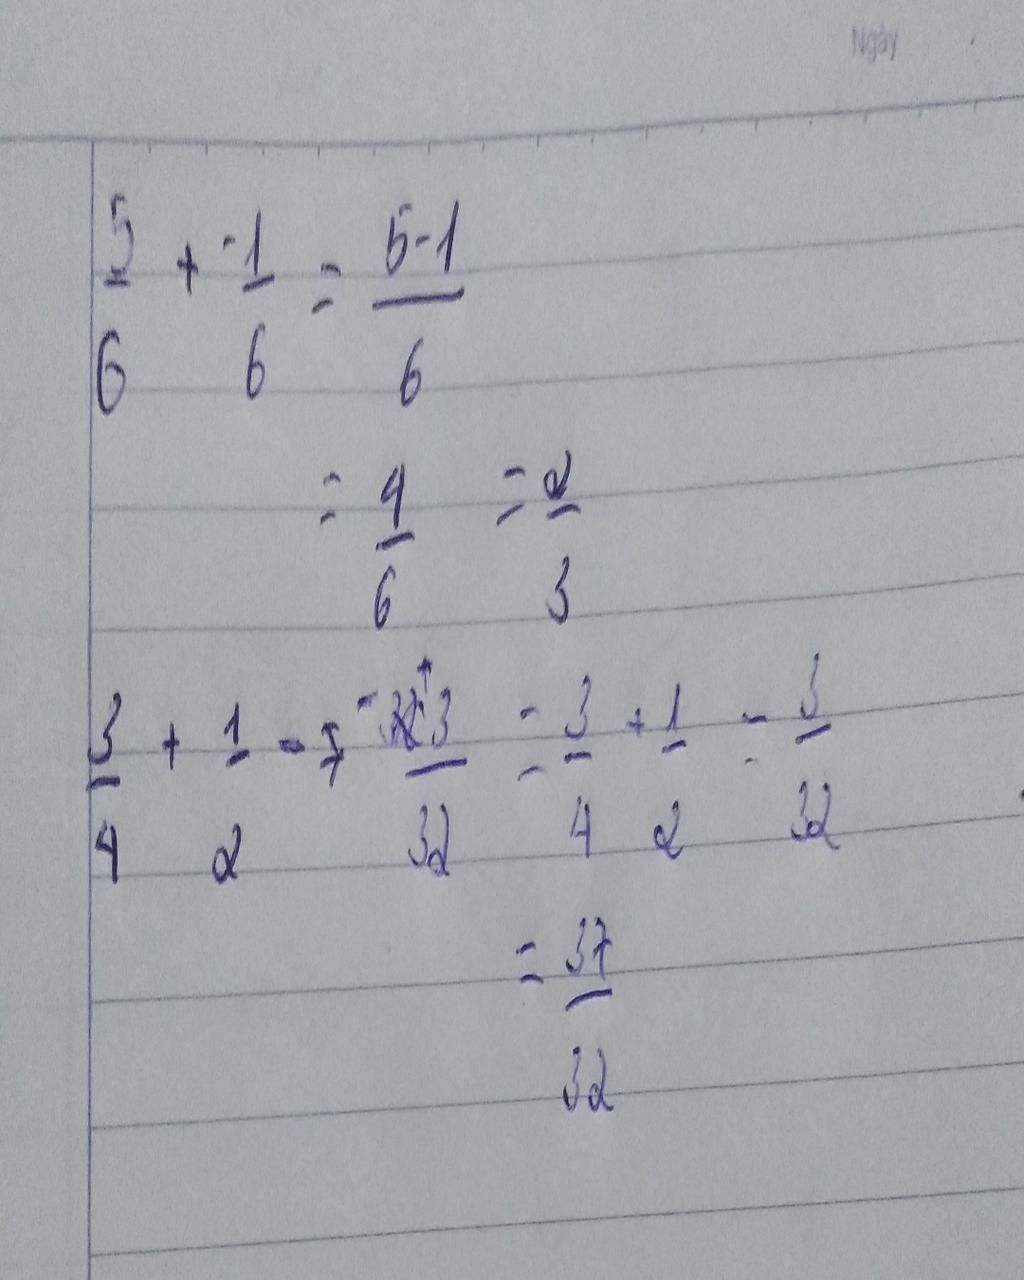 Ngày
5/6 + -1/6 = 5-1/6
= 4/6 = 2/3
3/4 + 1/2 + -3/32 = 3/4 + 1/2 - 3/32
= 37/32